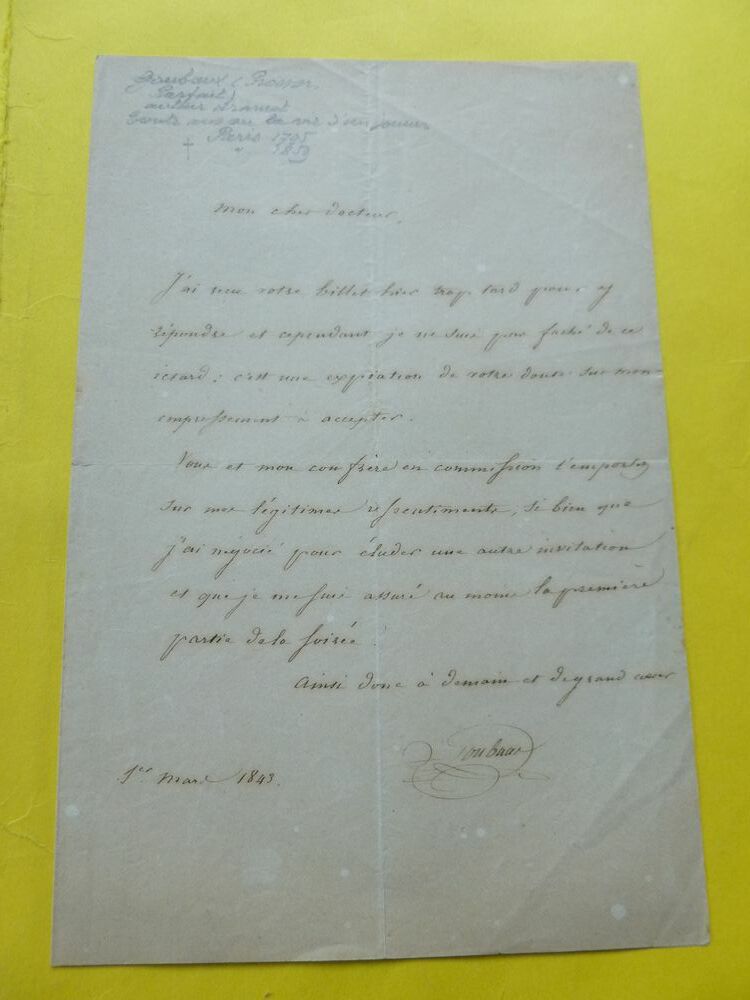 Goubaux (Prosper
Parfait)
auteur dramat
Trente ans ou la vie d'un joueur
Paris 1795
† " 1859
Mon cher docteur,
J'ai reçu votre billet hier trop tard pour y
répondre et cependant je ne suis pas faché de ce
retard; c'est une expiation de votre doute sur mon
empressement à accepter.
Vous et mon confrère en commission l'emportez
sur mes légitimes ressentiments, si bien que
j'ai négocié pour éluder une autre invitation
et que je me suis assuré au moins la première
partie de la soirée.
Ainsi donc à demain et de grand cœur
Goubaux
1er Mars 1843.